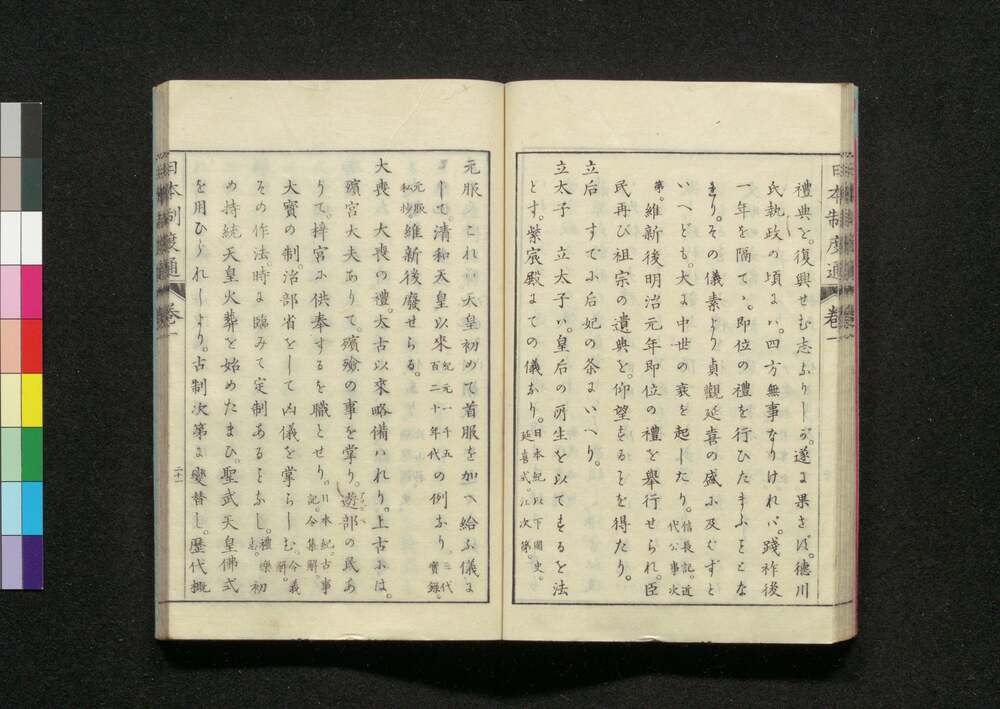 禮典を。復興せむ志ふりしが。遂に果さず。德川
氏執政の頃まハ。四方無事なりければ。踐祚後
一年を隔て、即位の禮を行ひたまふことな
まり。その儀素より貞觀延喜の盛に及ばずと
いへども。大に中世の衰を起したり。信長記。近代公事次
第。維新後明治元年即位の禮を擧行せられ。臣
民再び祖宗の遺典を仰望することを得たり。
立后 すでに后妃の条にいへり。
立太子 立太子ハ。皇后の所生を以てするを法
とす。紫宸殿にての儀なり。日本紀以下國史。延喜式。江次第。
日本制度通 卷一
元服 これハ天皇初めて着服を加へ給ふ儀に
して。清和天皇以來紀元一千五百二十年代の例なり。三代實錄。
元服私抄。維新後廢せらる。
大喪 大喪の禮。大古以來略備ハれり。上古にハ。
殯宮大夫ありて。殯殮の事を掌り。遊部の民あ
りて。梓宮に供奉するを職とせり。日本紀。古事記。令集解。
大寶の制。治部省をして凶儀を掌らしむ。令義解。
その作法。時に臨みて定制あることなし。禮樂志。初
め持統天皇火葬を始めたまひ。聖武天皇佛式
を用ひられしより。古制次第に變替し。歷代概
日本制度通 卷一
二十一